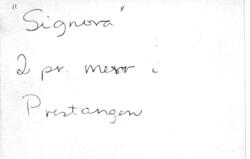 "Signora"
2 pr. merr i
Prestangen